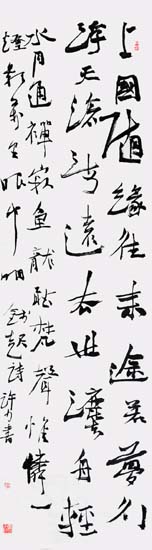 上國隨緣住来途若夢行
浮天滄海遠去世灋舟輕
水月通禪寂魚龍聽梵聲惟憐一
燈影萬里眼中明 錢起詩 書